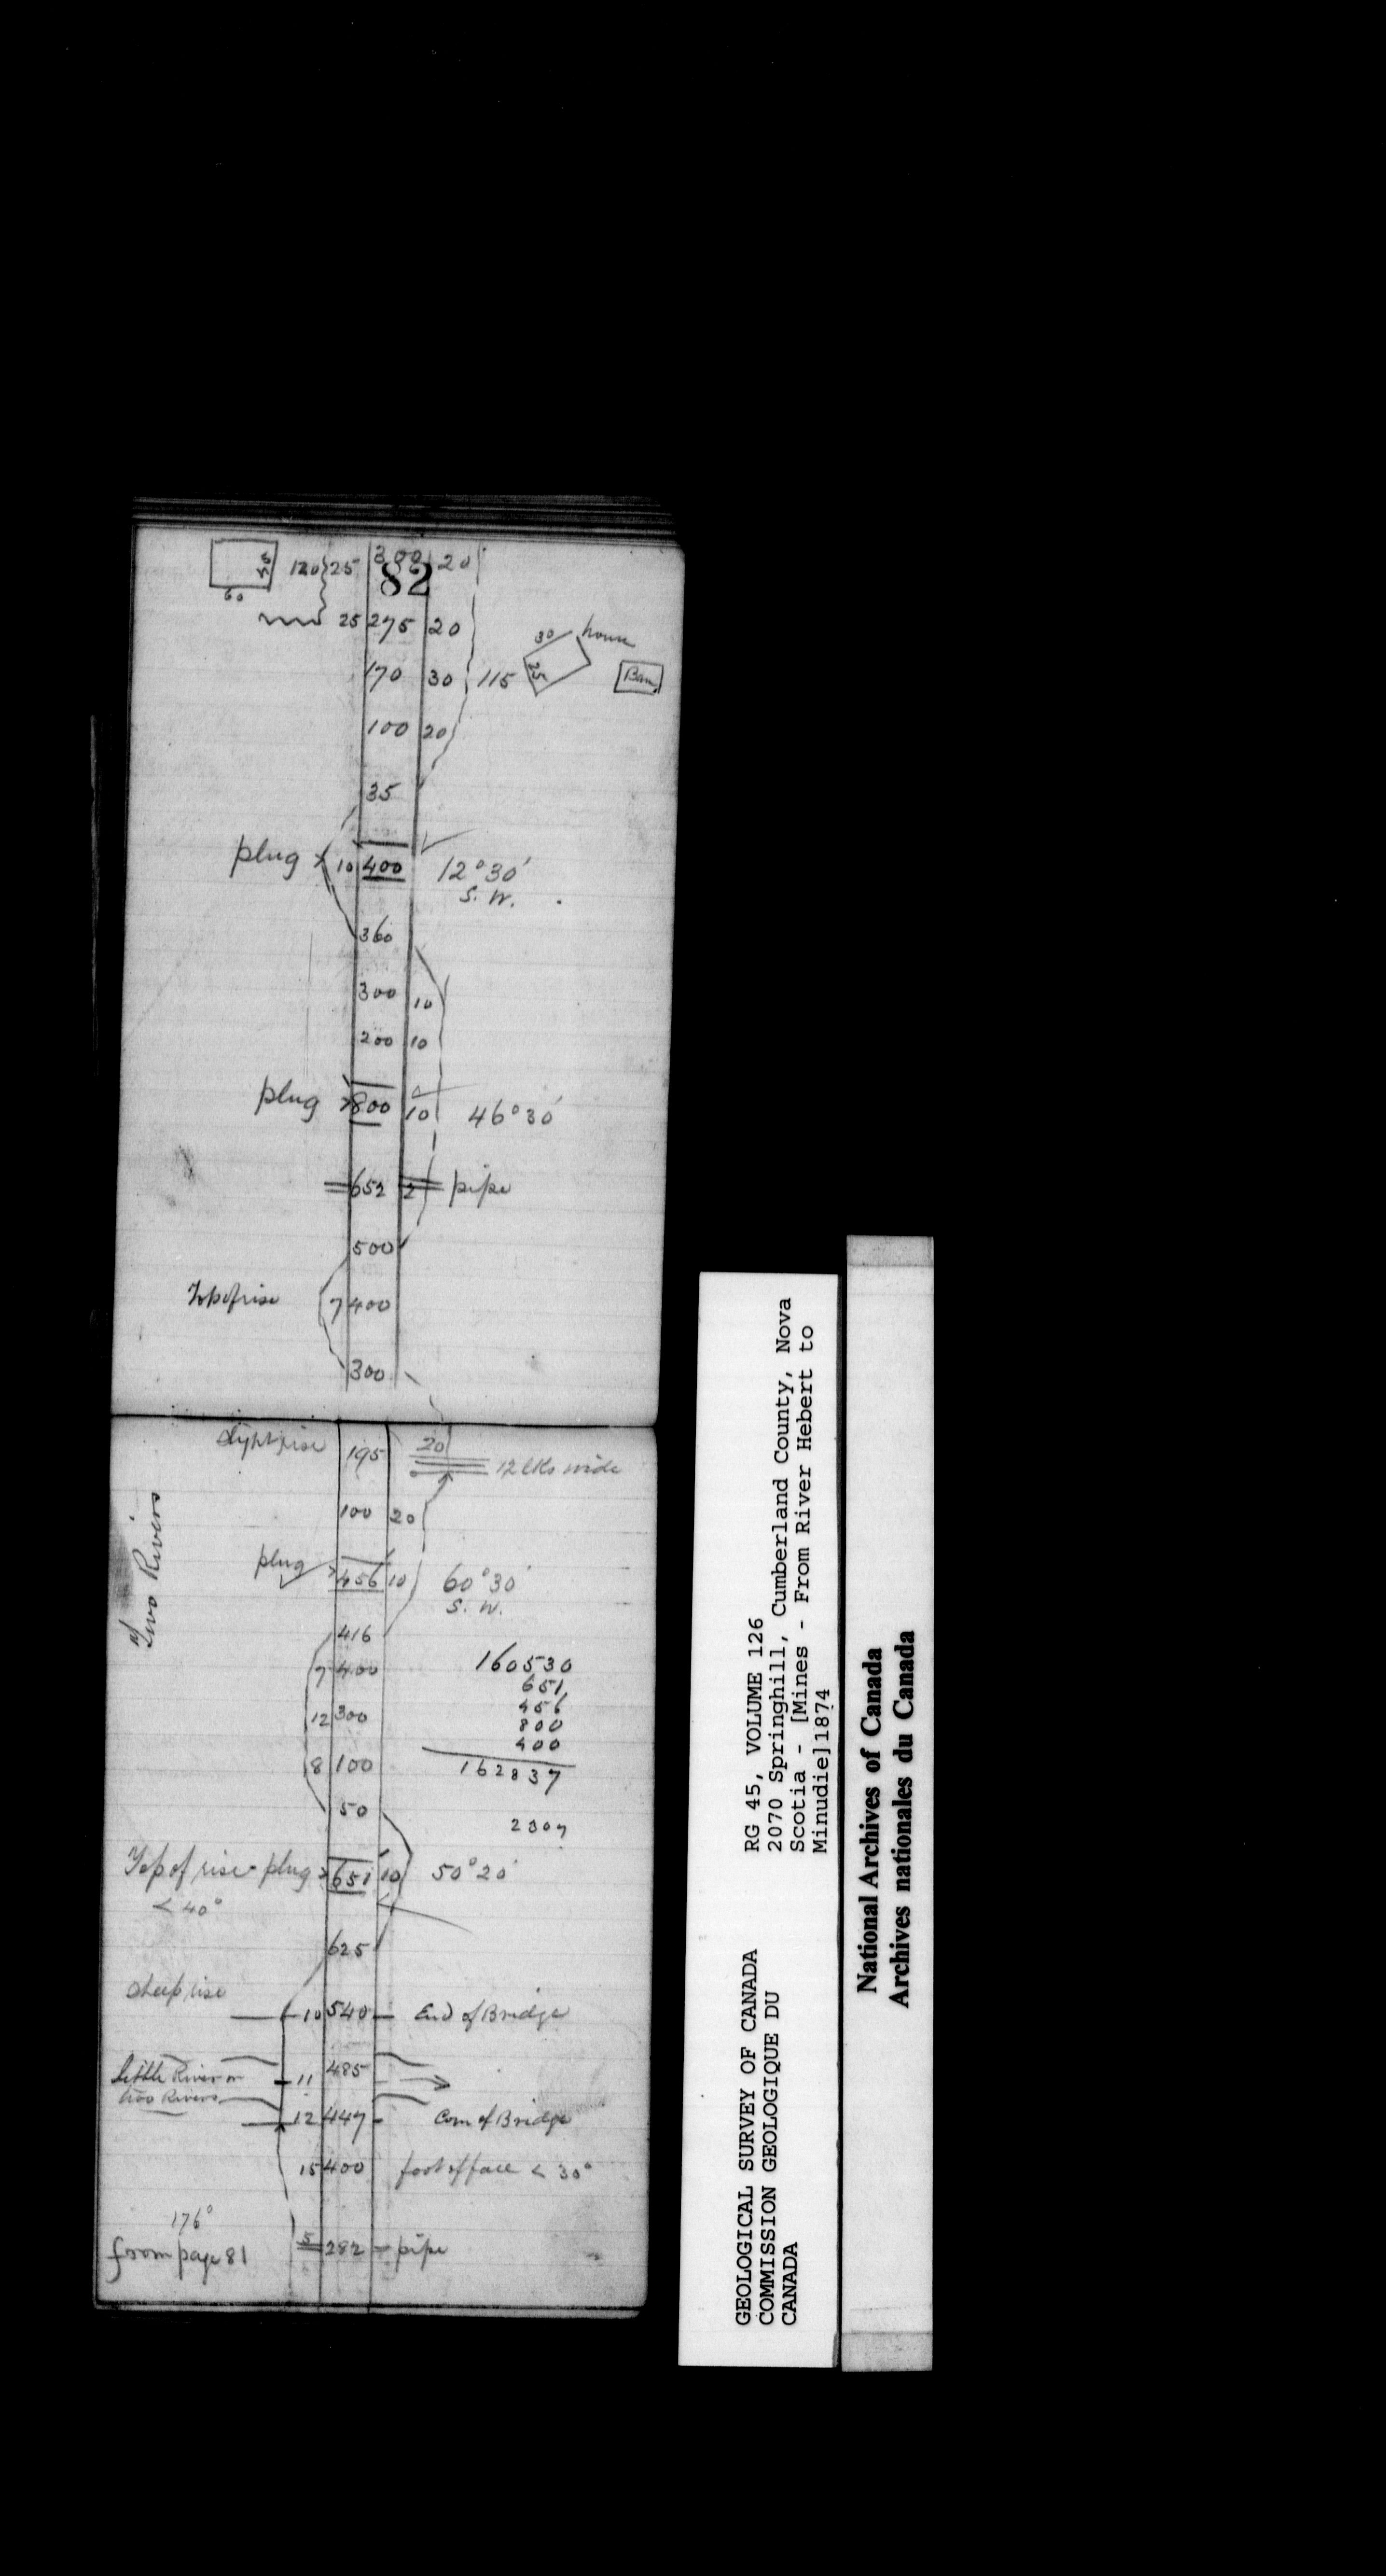 120 25 300 20
82
60
25 275 20
30 house
25
170 30 115
Barn
100 20
35
plug 10 400 12°30'
S. W.
360
300 10
200 10
plug 800 10 46°30'
652 2 pipe
500
Top of rise 7 400
300
Slight rise 195 20
12 lks wide
100 20
Two Rivers
plug 456 10 60°30'
S. W.
416
7 400
12 300
8 100
50
160530
651
456
800
400
162837
2307
Top of rise - plug 651 10 50°20'
< 40°
625
Steep rise
10 540 End of Bridge
Little River or 11 485
two Rivers
12 447 Com of Bridge
15 400 foot of face < 30°
176°
from page 81 5 282 pipe
GEOLOGICAL SURVEY OF CANADA
COMMISSION GEOLOGIQUE DU
CANADA
RG 45, VOLUME 126
2070 Springhill, Cumberland County, Nova
Scotia - [Mines - From River Hebert to
Minudie]1874
National Archives of Canada
Archives nationales du Canada